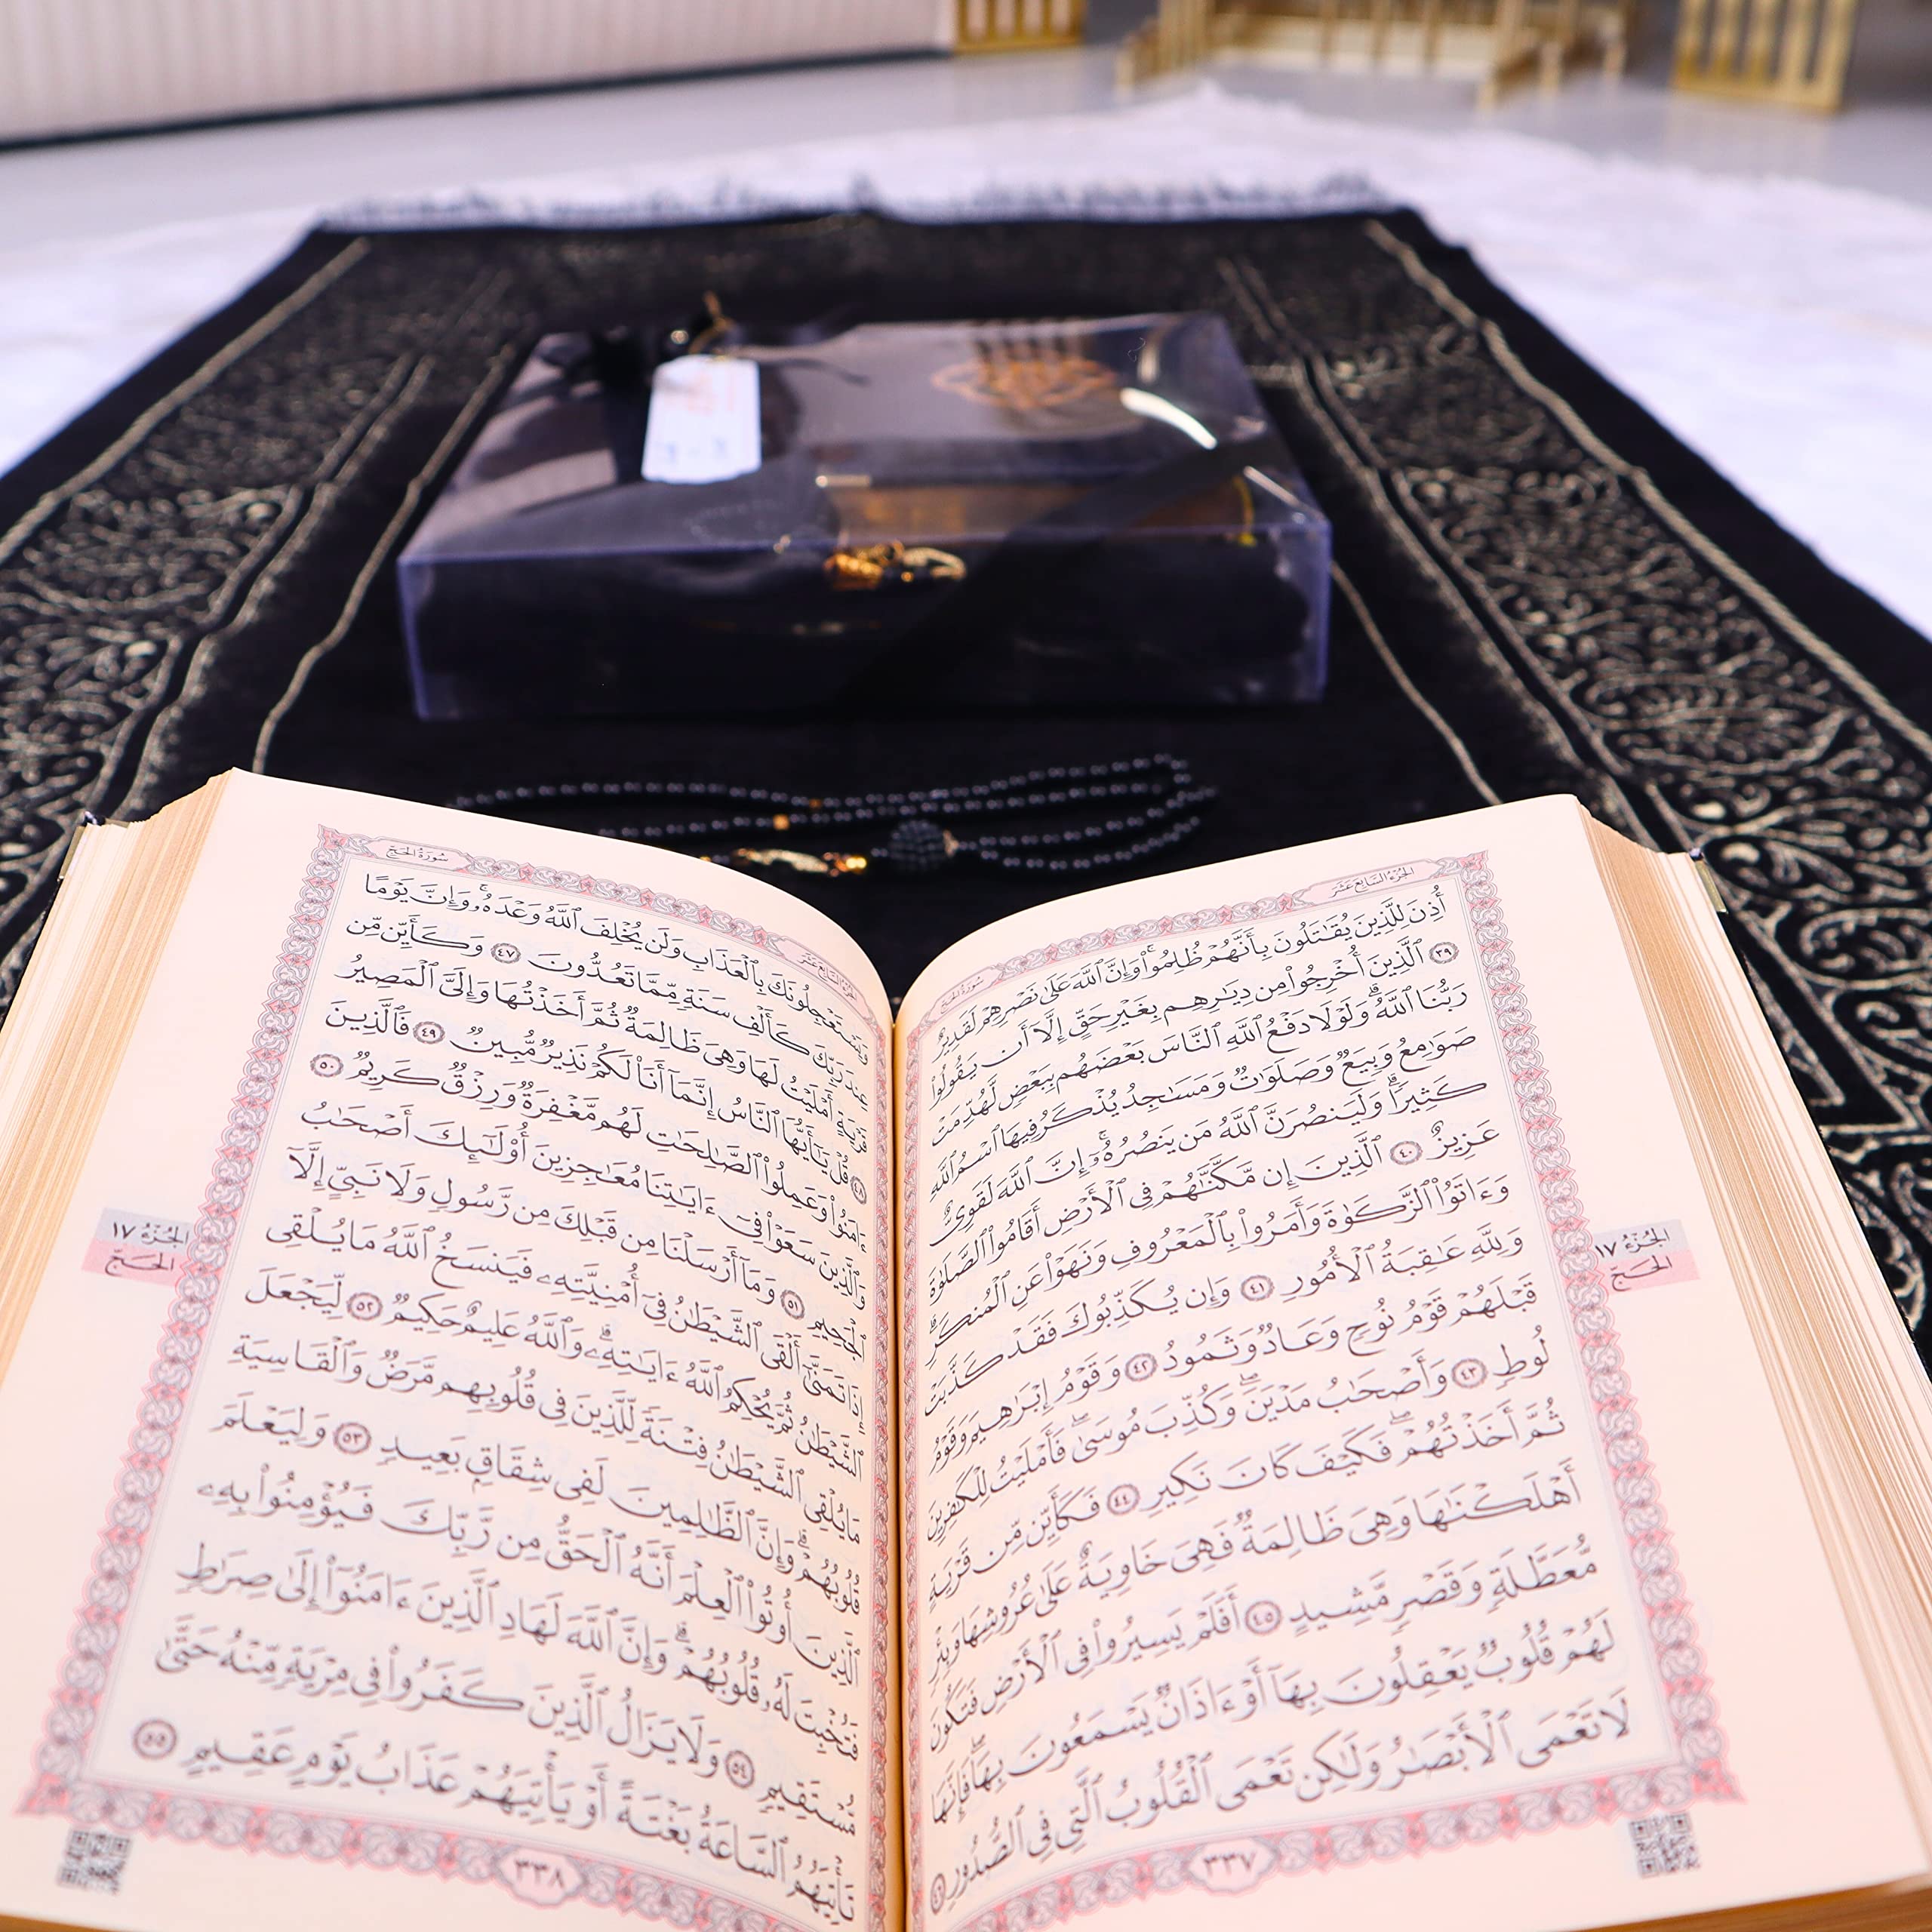 الجزء السابع عشر
سورة الحج
أُذِنَ لِلَّذِينَ يُقَٰتَلُونَ بِأَنَّهُمْ ظُلِمُوا۟ وَإِنَّ ٱللَّهَ عَلَىٰ نَصْرِهِمْ لَقَدِيرٌ
٣٩ ٱلَّذِينَ أُخْرِجُوا۟ مِن دِيَٰرِهِم بِغَيْرِ حَقٍّ إِلَّآ أَن يَقُولُوا۟
رَبُّنَا ٱللَّهُ ۗ وَلَوْلَا دَفْعُ ٱللَّهِ ٱلنَّاسَ بَعْضَهُم بِبَعْضٍ لَّهُدِّمَتْ
صَوَٰمِعُ وَبِيَعٌ وَصَلَوَٰتٌ وَمَسَٰجِدُ يُذْكَرُ فِيهَا ٱسْمُ ٱللَّهِ
كَثِيرًا ۗ وَلَيَنصُرَنَّ ٱللَّهُ مَن يَنصُرُهُۥٓ ۗ إِنَّ ٱللَّهَ لَقَوِىٌّ
عَزِيزٌ ٤٠ ٱلَّذِينَ إِن مَّكَّنَّٰهُمْ فِى ٱلْأَرْضِ أَقَامُوا۟ ٱلصَّلَوٰةَ
وَءَاتَوُا۟ ٱلزَّكَوٰةَ وَأَمَرُوا۟ بِٱلْمَعْرُوفِ وَنَهَوْا۟ عَنِ ٱلْمُنكَرِ ۗ
وَلِلَّهِ عَٰقِبَةُ ٱلْأُمُورِ ٤١ وَإِن يُكَذِّبُوكَ فَقَدْ كَذَّبَتْ
قَبْلَهُمْ قَوْمُ نُوحٍ وَعَادٌ وَثَمُودُ ٤٢ وَقَوْمُ إِبْرَٰهِيمَ وَقَوْمُ
لُوطٍ ٤٣ وَأَصْحَٰبُ مَدْيَنَ ۖ وَكُذِّبَ مُوسَىٰ ۖ فَأَمْلَيْتُ لِلْكَٰفِرِينَ
ثُمَّ أَخَذْتُهُمْ ۖ فَكَيْفَ كَانَ نَكِيرِ ٤٤ فَكَأَيِّن مِّن قَرْيَةٍ
أَهْلَكْنَٰهَا وَهِىَ ظَالِمَةٌ فَهِىَ خَاوِيَةٌ عَلَىٰ عُرُوشِهَا وَبِئْرٍ
مُّعَطَّلَةٍ وَقَصْرٍ مَّشِيدٍ ٤٥ أَفَلَمْ يَسِيرُوا۟ فِى ٱلْأَرْضِ فَتَكُونَ
لَهُمْ قُلُوبٌ يَعْقِلُونَ بِهَآ أَوْ ءَاذَانٌ يَسْمَعُونَ بِهَا ۖ فَإِنَّهَا
لَا تَعْمَى ٱلْأَبْصَٰرُ وَلَٰكِن تَعْمَى ٱلْقُلُوبُ ٱلَّتِى فِى ٱلصُّدُورِ ٤٦
الجزء ١٧
الحج
٣٣٧
الجزء السابع عشر
سورة الحج
وَيَسْتَعْجِلُونَكَ بِٱلْعَذَابِ وَلَن يُخْلِفَ ٱللَّهُ وَعْدَهُۥ ۚ وَإِنَّ يَوْمًا
عِندَ رَبِّكَ كَأَلْفِ سَنَةٍ مِّمَّا تَعُدُّونَ ٤٧ وَكَأَيِّن مِّن
قَرْيَةٍ أَمْلَيْتُ لَهَا وَهِىَ ظَالِمَةٌ ثُمَّ أَخَذْتُهَا وَإِلَىَّ ٱلْمَصِيرُ
٤٨ قُلْ يَٰٓأَيُّهَا ٱلنَّاسُ إِنَّمَآ أَنَا۠ لَكُمْ نَذِيرٌ مُّبِينٌ ٤٩ فَٱلَّذِينَ
ءَامَنُوا۟ وَعَمِلُوا۟ ٱلصَّٰلِحَٰتِ لَهُم مَّغْفِرَةٌ وَرِزْقٌ كَرِيمٌ ٥٠
وَٱلَّذِينَ سَعَوْا۟ فِىٓ ءَايَٰتِنَا مُعَٰجِزِينَ أُو۟لَٰٓئِكَ أَصْحَٰبُ
ٱلْجَحِيمِ ٥١ وَمَآ أَرْسَلْنَا مِن قَبْلِكَ مِن رَّسُولٍ وَلَا نَبِىٍّ إِلَّآ
إِذَا تَمَنَّىٰٓ أَلْقَى ٱلشَّيْطَٰنُ فِىٓ أُمْنِيَّتِهِۦ فَيَنسَخُ ٱللَّهُ مَا يُلْقِى
ٱلشَّيْطَٰنُ ثُمَّ يُحْكِمُ ٱللَّهُ ءَايَٰتِهِۦ ۗ وَٱللَّهُ عَلِيمٌ حَكِيمٌ ٥٢ لِّيَجْعَلَ
مَا يُلْقِى ٱلشَّيْطَٰنُ فِتْنَةً لِّلَّذِينَ فِى قُلُوبِهِم مَّرَضٌ وَٱلْقَاسِيَةِ
قُلُوبُهُمْ ۗ وَإِنَّ ٱلظَّٰلِمِينَ لَفِى شِقَاقٍۭ بَعِيدٍ ٥٣ وَلِيَعْلَمَ
ٱلَّذِينَ أُوتُوا۟ ٱلْعِلْمَ أَنَّهُ ٱلْحَقُّ مِن رَّبِّكَ فَيُؤْمِنُوا۟ بِهِۦ
فَتُخْبِتَ لَهُۥ قُلُوبُهُمْ ۗ وَإِنَّ ٱللَّهَ لَهَادِ ٱلَّذِينَ ءَامَنُوٓا۟ إِلَىٰ صِرَٰطٍ
مُّسْتَقِيمٍ ٥٤ وَلَا يَزَالُ ٱلَّذِينَ كَفَرُوا۟ فِى مِرْيَةٍ مِّنْهُ حَتَّىٰ
تَأْتِيَهُمُ ٱلسَّاعَةُ بَغْتَةً أَوْ يَأْتِيَهُمْ عَذَابُ يَوْمٍ عَقِيمٍ ٥٥
الجزء ١٧
الحج
٣٣٨